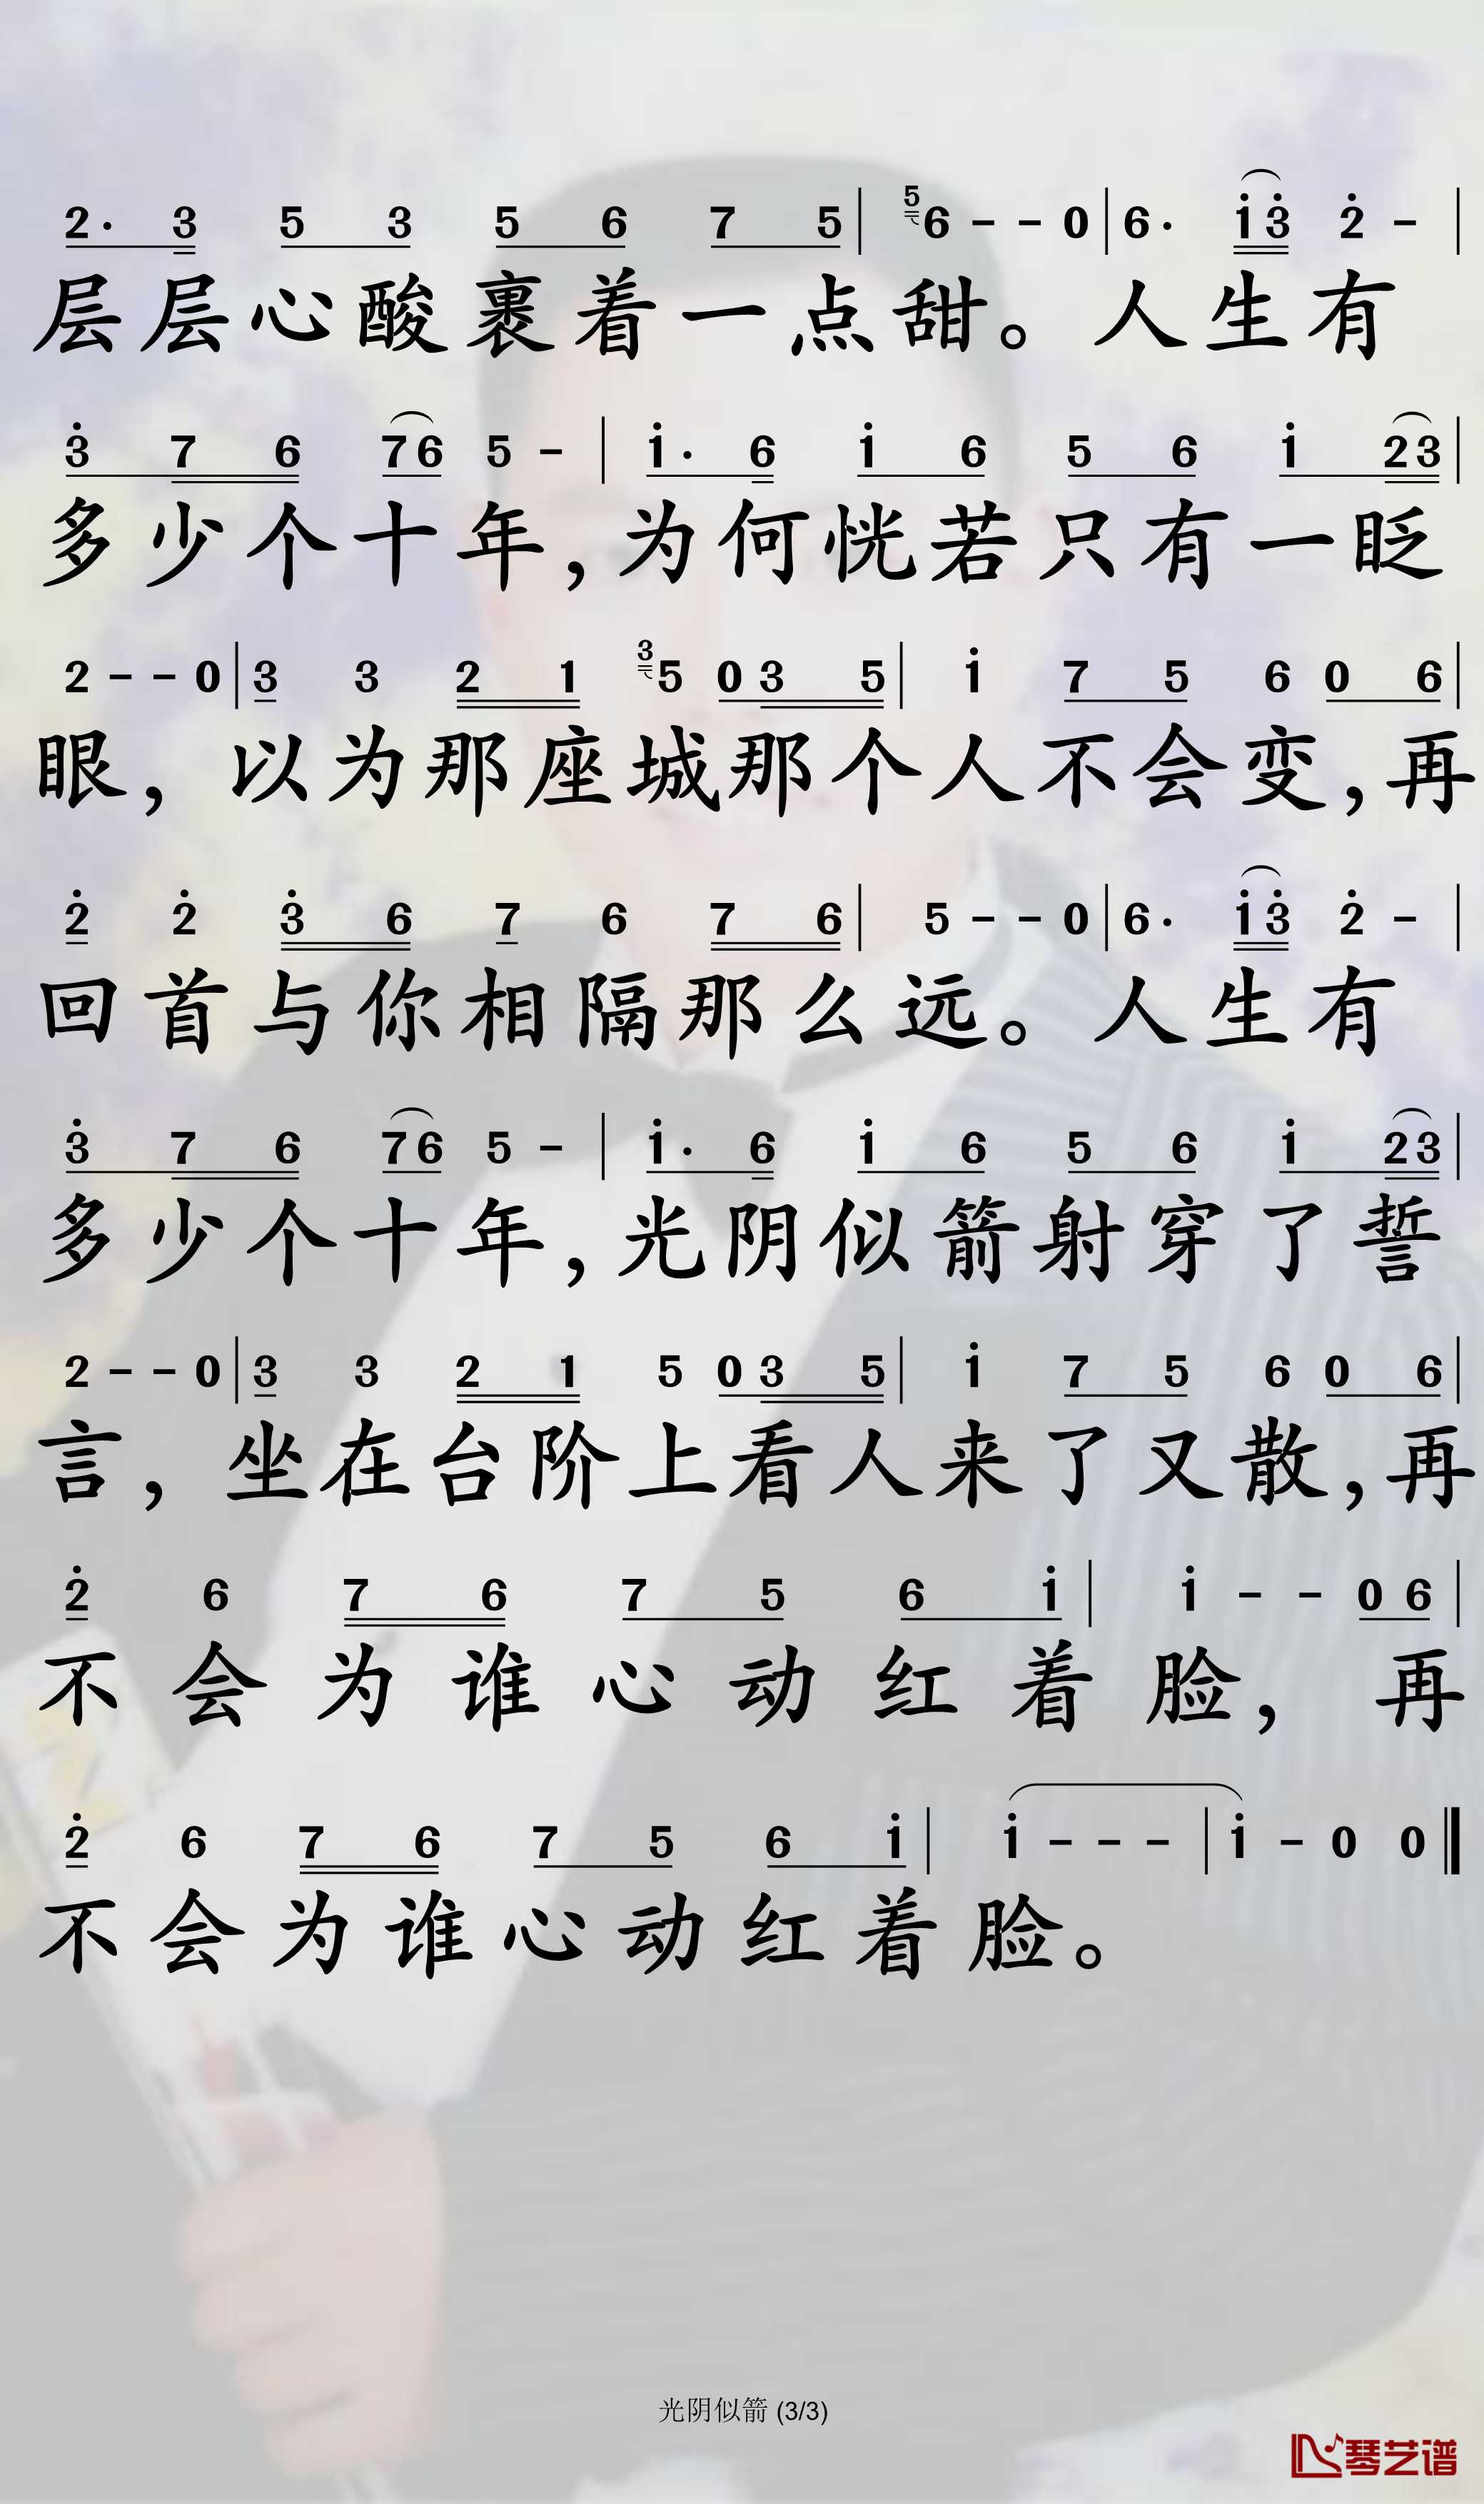 2· 3 5 3 5 6 7 5 | 5 6 - - 0 | 6· i 3̇ 2̇ - |
层层心酸裹着一点甜。人生有
3̇ 7 6 7 6 5 - | i· 6 i 6 5 6 i 2 3 |
多少个十年,为何恍若只有一眨
2 - - 0 | 3 3 2 1 3 5 0 3 5 | i 7 5 6 0 6 |
眼,以为那座城那个人不会变,再
2̇ 2̇ 3̇ 6 7 6 7 6 | 5 - - 0 | 6· i 3̇ 2̇ - |
回首与你相隔那么远。人生有
3̇ 7 6 7 6 5 - | i· 6 i 6 5 6 i 2 3 |
多少个十年,光阴似箭射穿了誓
2 - - 0 | 3 3 2 1 5 0 3 5 | i 7 5 6 0 6 |
言,坐在台阶上看人来了又散,再
2̇ 6 7 6 7 5 6 i | i - - 0 6 |
不会为谁心动红着脸,再
2̇ 6 7 6 7 5 6 i | i - - - | i - 0 0 ‖
不会为谁心动红着脸。
光阴似箭 (3/3)
琴艺谱